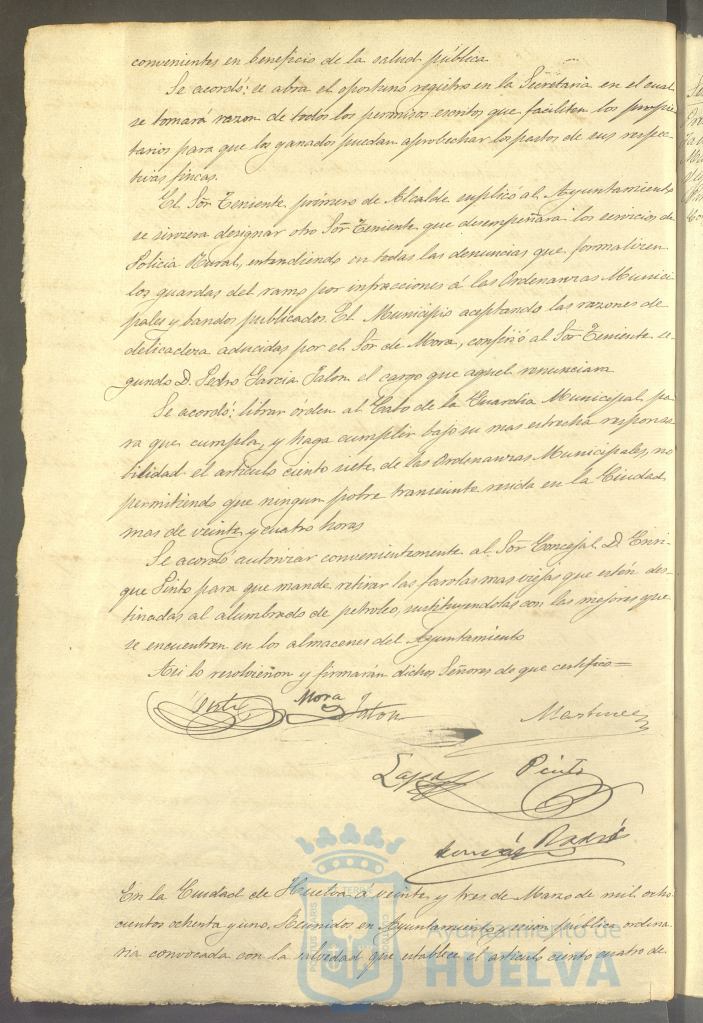 convenientes en beneficio de la salud pública
Se acordó: se abra el oportuno registro en la Secretaria en el cual
se tomará razon de todos los permisos escritos que faciliten los propie
tarios para que los ganados puedan aprobechar los pastos de sus respec
tivas fincas.
El Sõr Teniente primero de Alcalde suplicó al Ayuntamiento
se sirviera designar otro Sõr Teniente que desempeñara los servicios de
Policia Rural, entendiendo en todas las denuncias que formalicen
los guardas del ramo por infracciones á las Ordenanzas Munici
pales y bandos publicados. El Municipio aceptando las razones de
delicadeza aducidas por el Sõr de Mora, confirió al Sõr Teniente se
gundo D. Pedro Garcia Jalon el cargo que aquel renunciara
Se acordó: librar órden al Cabo de la Guardia Municipal pa
ra que cumpla, y haga cumplir bajo su mas estrecha responsa
bilidad el articulo ciento siete de las Ordenanzas Municipales, no
permitiendo que ningun pobre transeunte resida en la Ciudad
mas de veinte y cuatro horas
Se acordó autorizar convenientemente al Sõr Concejal D. Enri-
que Pinto para que mande retirar las farolas mas viejas que estén des-
tinadas al alumbrado de petroleo, sustituyendolas con las mejores que
se encuentren en los almacenes del Ayuntamiento
Asi lo resolvieron y firmarán dichos Señores de que certifico=
Mora
Jalon
Martinez
Pinto
En la Ciudad de Huelva a veinte y tres de Marzo de mil ocho
cientos ochenta y uno, Reunidos en Ayuntamiento y sesion pública ordina
ria convocada con la salvedad que establece el articulo ciento cuatro de
Ayuntamiento de
HUELVA